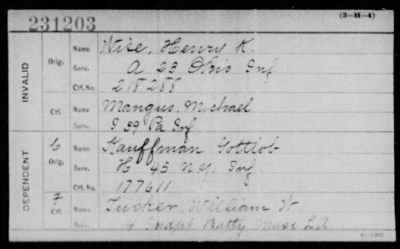 231203
(3-H-4)
INVALID
Orig. Name Wise, Henry K.
Serv. A 23 Ohio Inf
Ctf. No. 218288
Ctf. Name Mangus, Michael
Serv. I 59 Pa Inf
DEPENDENT
C Orig. Name Kauffman Gottlob
Serv. H 45 N.Y. Inf
Ctf. No. 177611
Ctf. Name Tucker, William W
Serv. 4 Indpt Batty Mass L.A